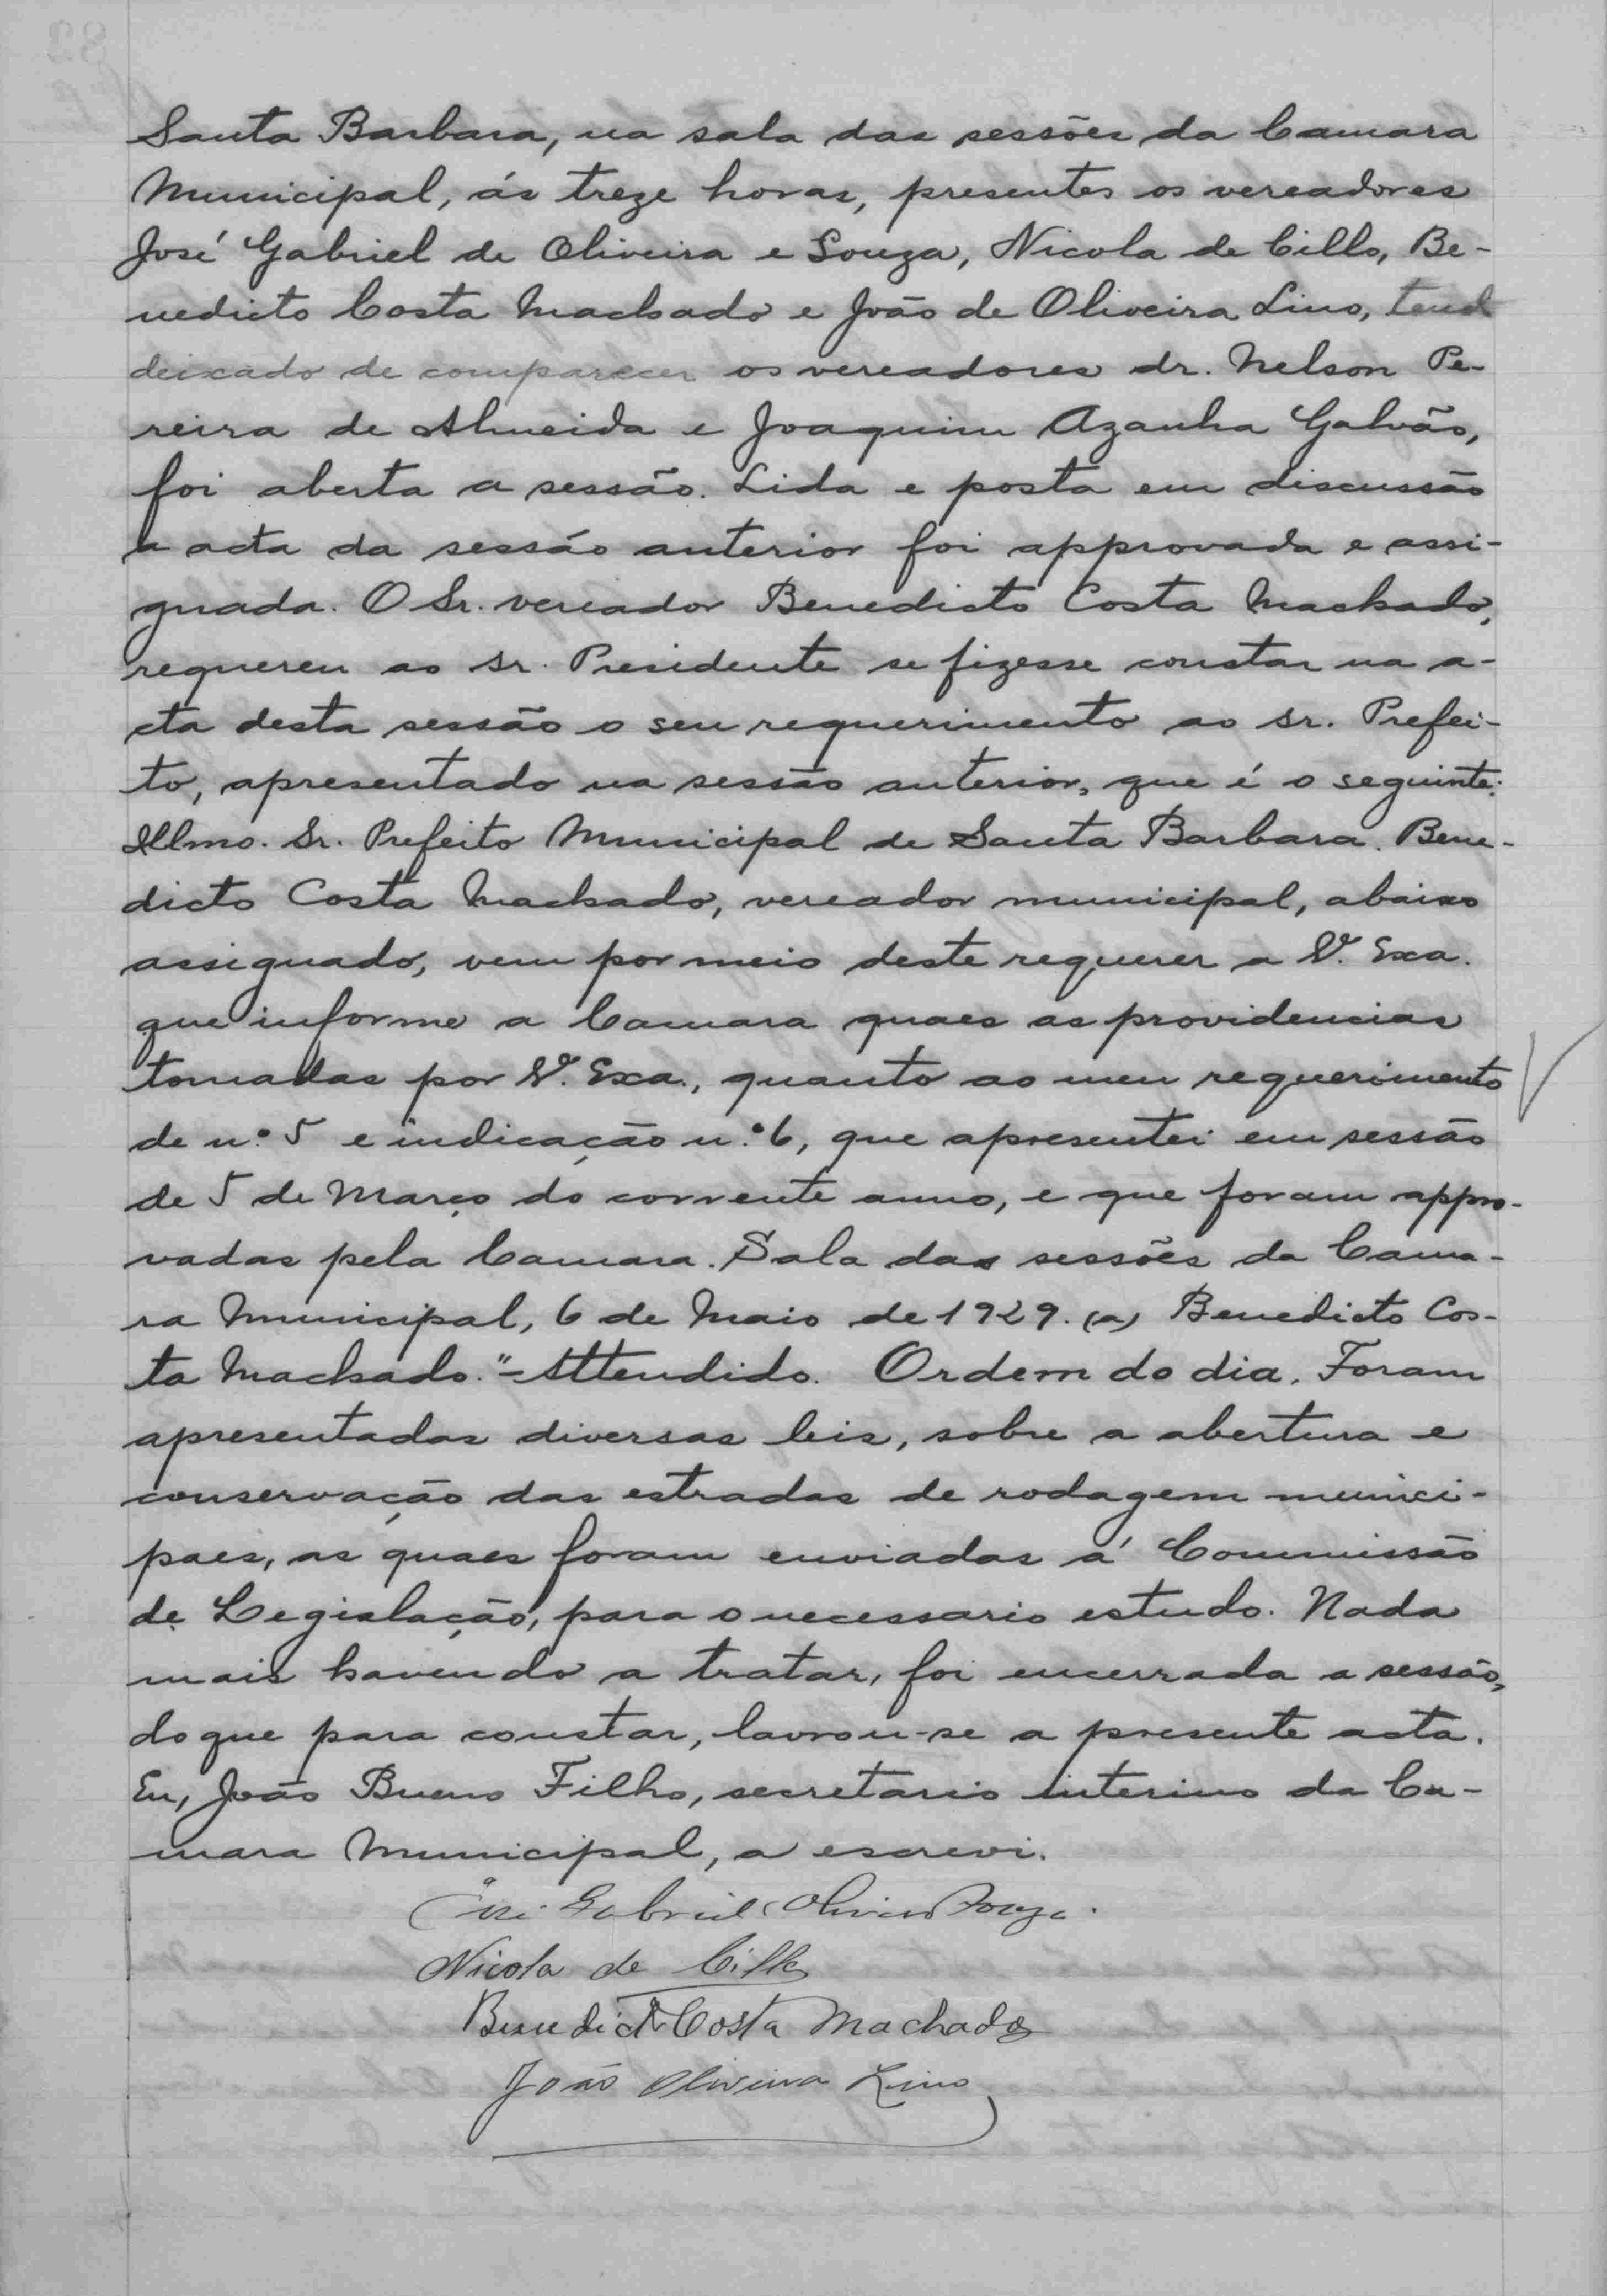 Santa Barbara, na sala das sessões da Camara
Municipal, ás treze horas, presentes os vereadores
José Gabriel de Oliveira e Souza, Nicola de Cillo, Be-
nedicto Costa Machado e João de Oliveira Lino, tend
deixado de comparecer os vereadores dr. Nelson Pe-
reira de Almeida e Joaquim Azanha Galvão,
foi aberta a sessão. Lida e posta em discussão
a acta da sessão anterior foi approvada e assi-
gnada. O Sr. vereador Benedicto Costa Machado,
requereu ao sr. Presidente se fizesse constar na a-
cta desta sessão o seu requerimento ao sr. Prefei-
to, apresentado na sessão anterior, que é o seguinte:
Illmo. Sr. Prefeito Municipal de Santa Barbara. Bene-
dicto Costa Machado, vereador municipal, abaixo
assignado, vem por meio deste requerer a V. Exa.
que informe a Camara quaes as providencias
tomadas por V. Exa., quanto ao meu requerimento
de n.º 5 e indicação n.º 6, que apresentei em sessão
de 5 de Março do corrente anno, e que foram appro-
vadas pela Camara. Sala das sessões da Cama-
ra Municipal, 6 de Maio de 1929. (a) Benedicto Cos-
ta Machado." - Attendido. Ordem do dia. Foram
apresentadas diversas leis, sobre a abertura e
conservação das estradas de rodagem munici-
paes, as quaes foram enviadas á Commissão
de Legislação, para o necessario estudo. Nada
mais havendo a tratar, foi encerrada a sessão,
do que para constar, lavrou-se a presente acta.
Eu, João Bueno Filho, secretario interino da Ca-
mara Municipal, a escrevi.
José Gabriel Oliveira Souza.
Nicola de Cillo
Benedicto Costa Machado
João Oliveira Lino